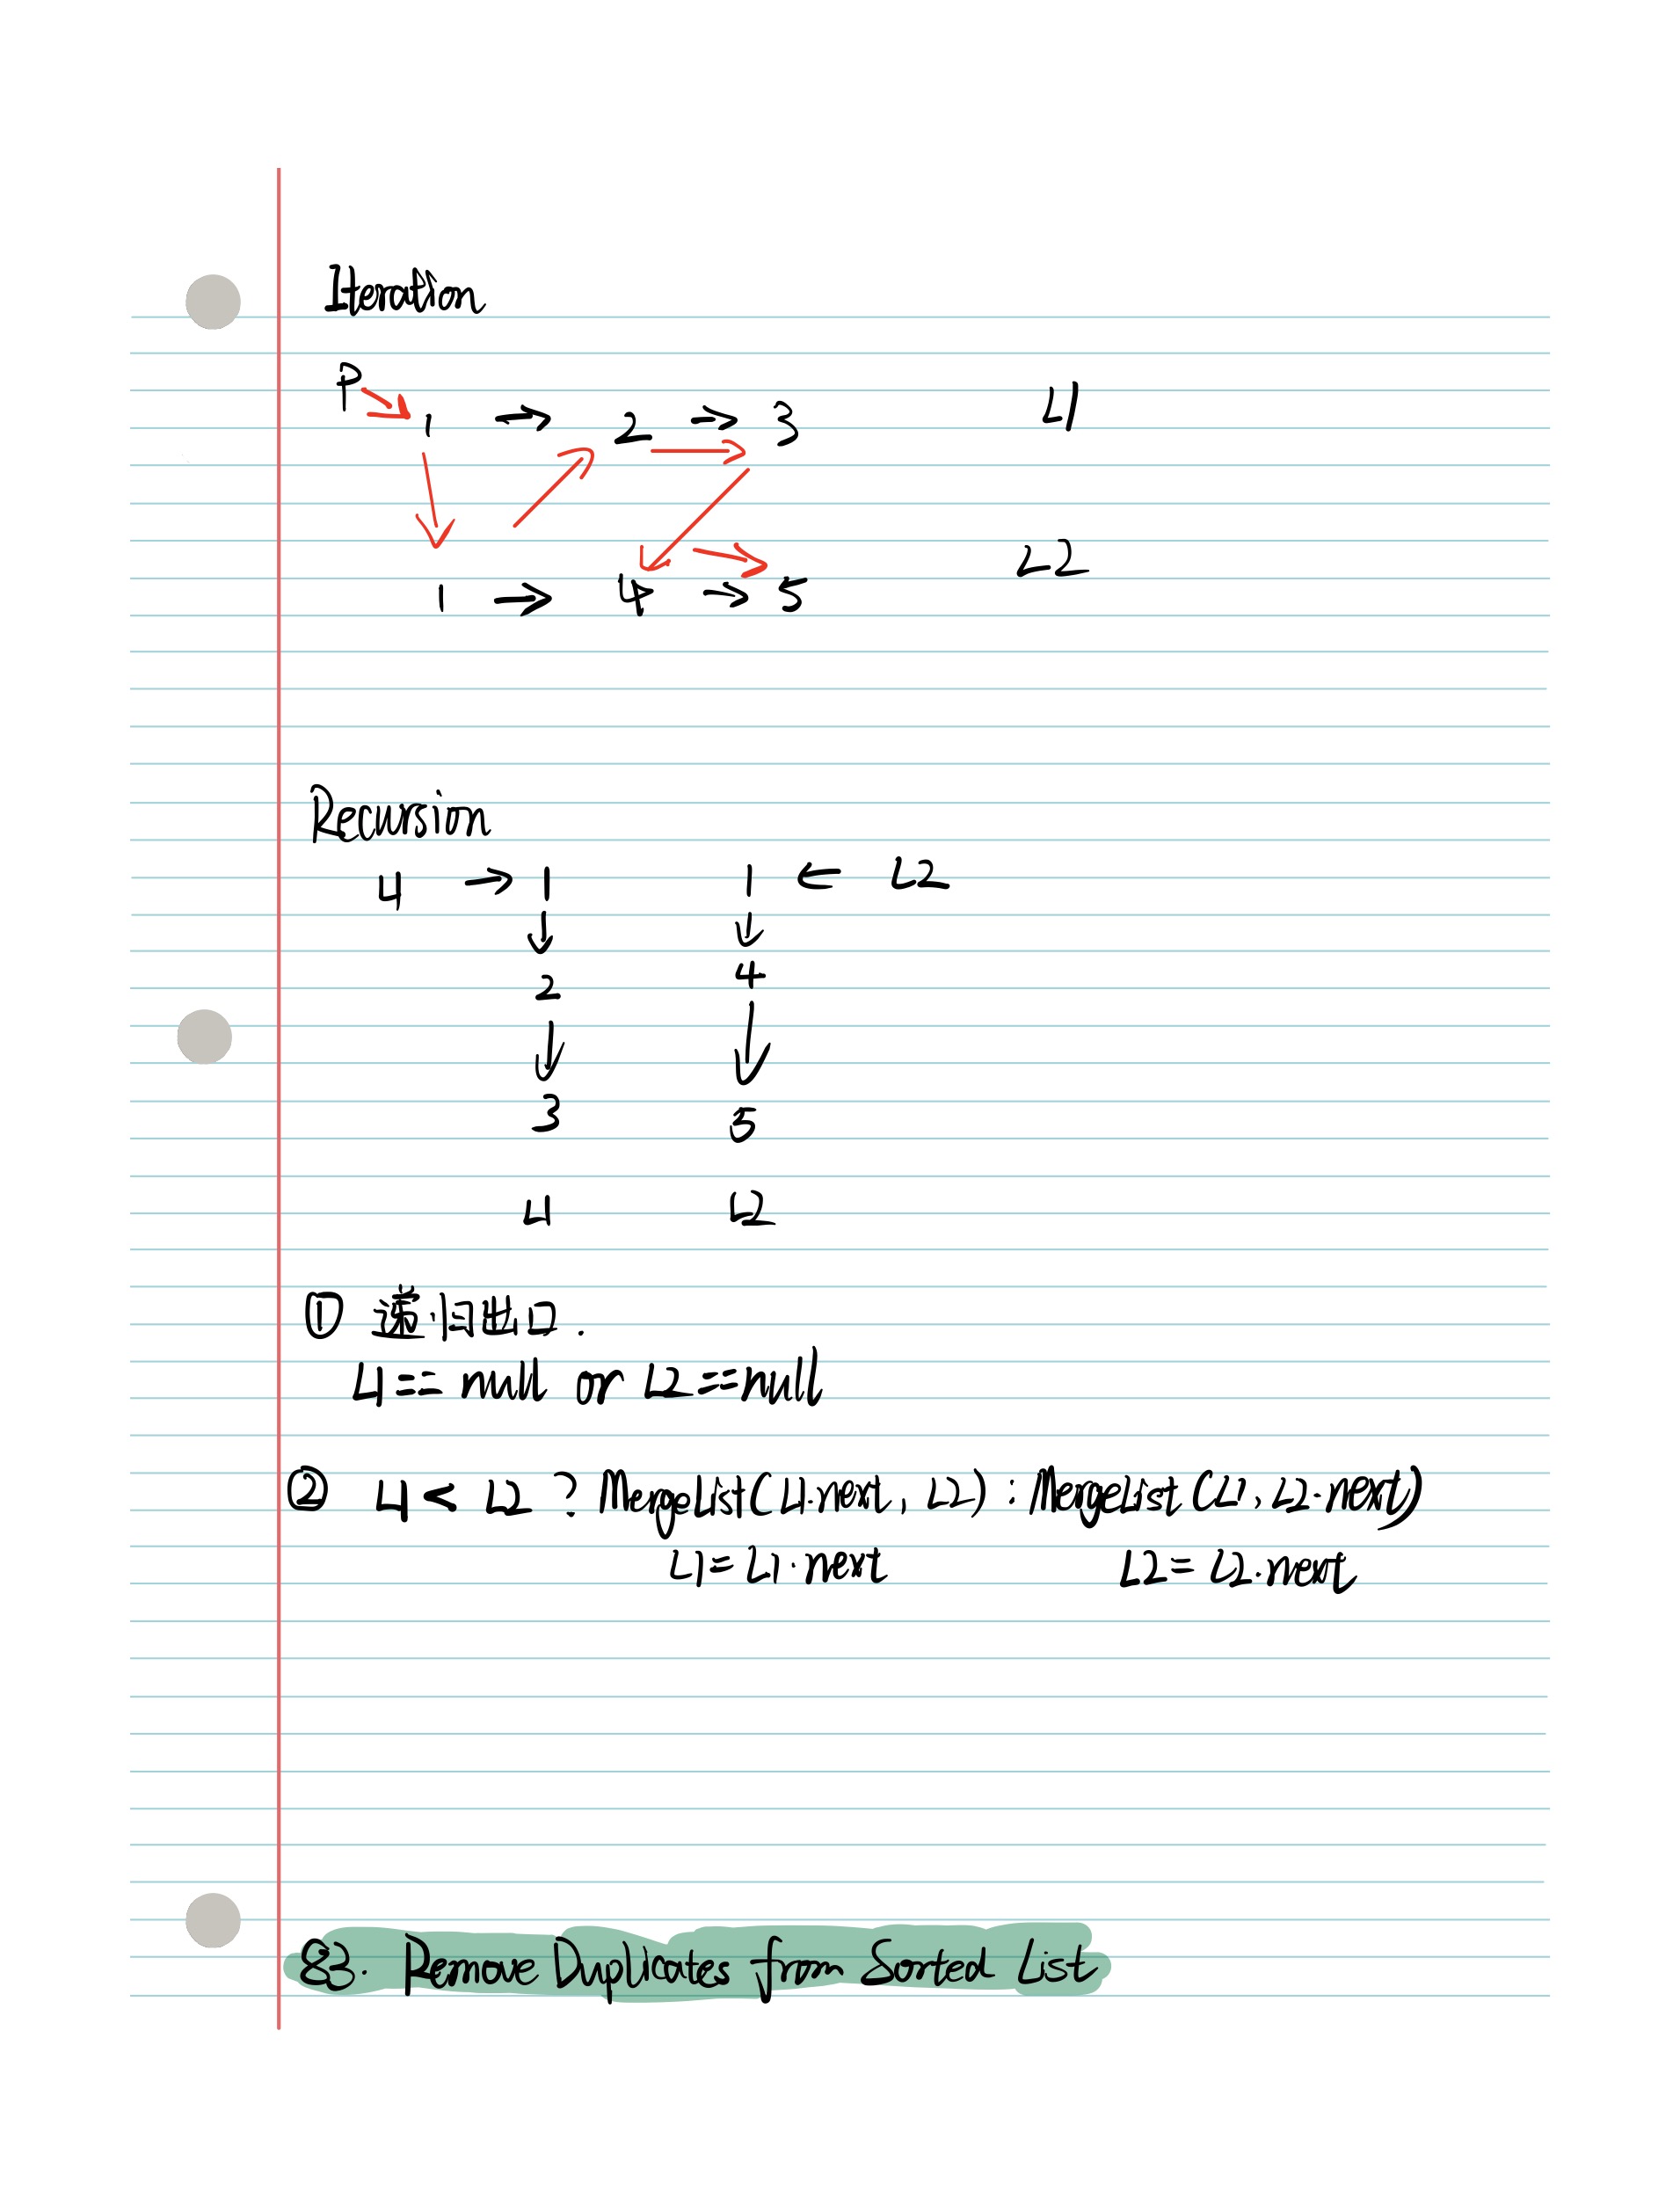 Iteration
P
1 → 2 → 3 L1
1 → 4 → 5 L2
Recursion
L1 → 1 1 ← L2
↓ ↓
2 4
↓ ↓
3 5
L1 L2
① 递归出口.
L1 == null or L2 == null
② L1 < L2 ? MergeList(L1.next, L2) : MergeList(L1, L2.next)
L1 = L1.next L2 = L2.next
83. Remove Duplicates from Sorted List